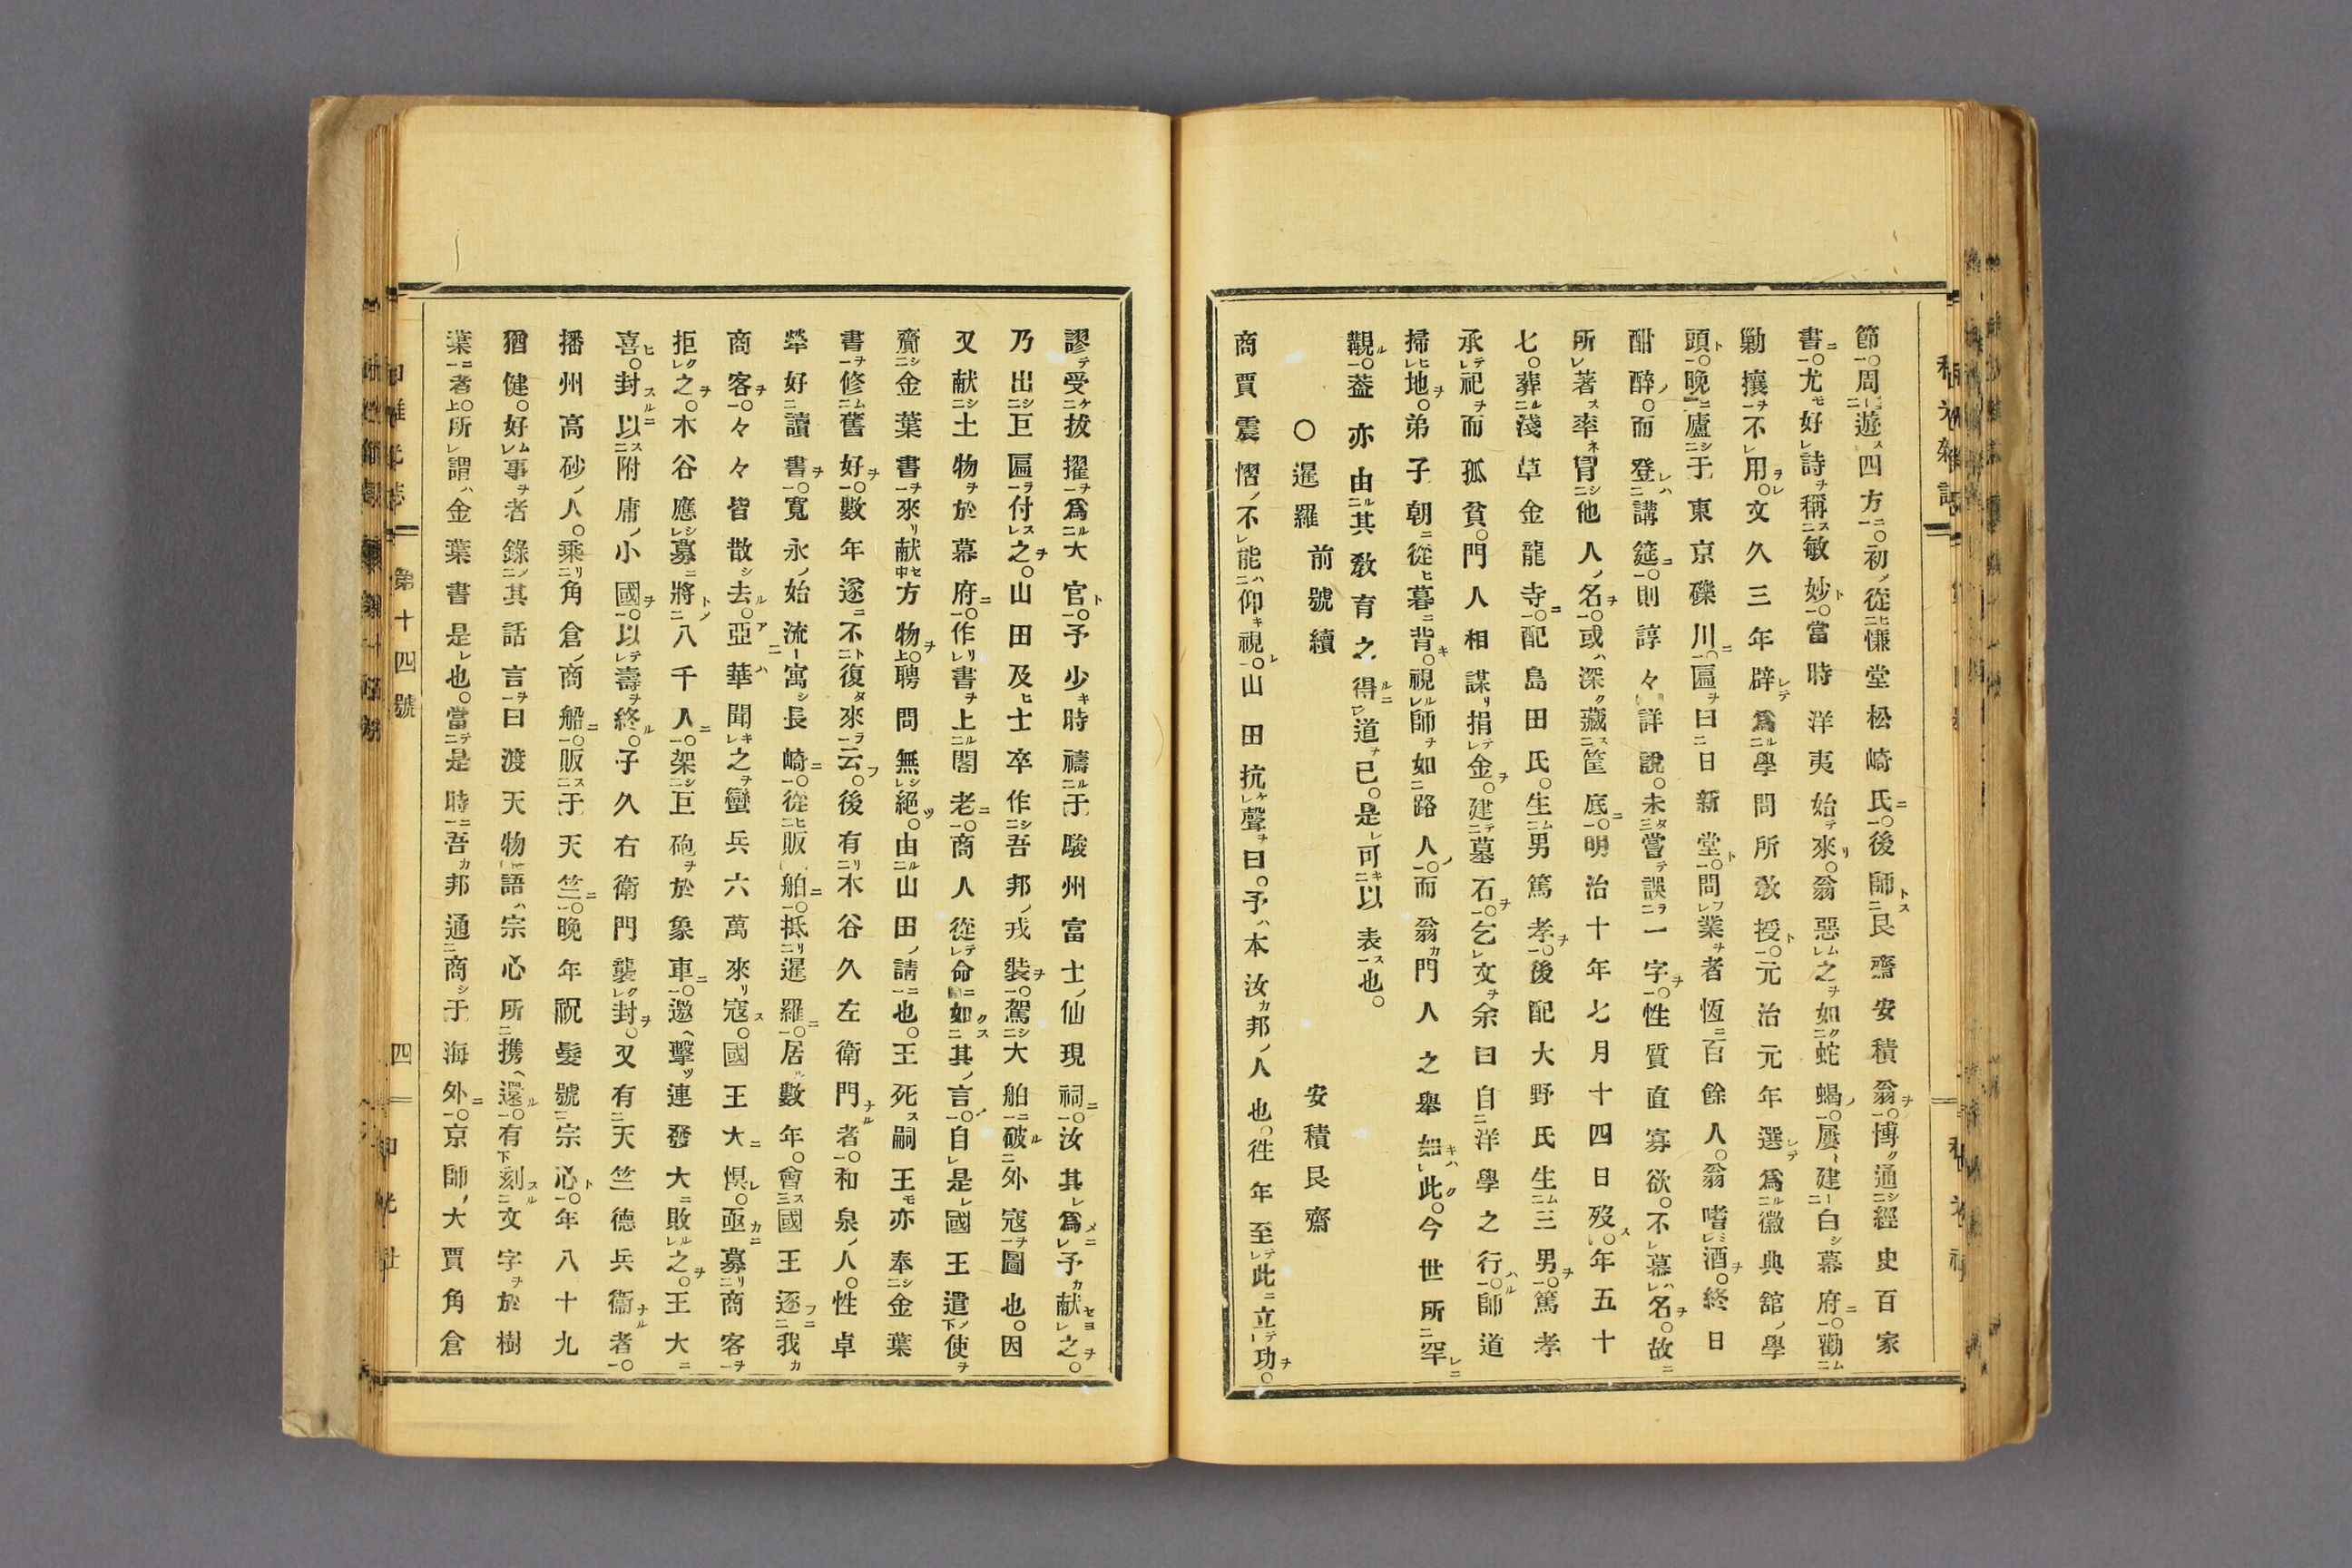 節。周遊四方。初從慊堂松崎氏。後師艮齋安積翁。博通經史百家
書。尤好詩稱敏妙。當時洋夷始來。翁惡之如蛇蝎。屢建白幕府。勸
勦攘不用。文久三年辟爲學問所敎授。元治元年選爲徽典舘學
頭。晩廬于東京礫川。匾曰日新堂。問業者恆百餘人。翁嗜酒。終日
酣醉。而登講筵。則諄々詳說。未嘗誤一字。性質直寡欲。不慕名。故
所著率冐他人名。或深藏筐底。明治十年七月十四日歿。年五十
七。葬淺草金龍寺。配島田氏。生男篤孝。後配大野氏生三男。篤孝
承祀而孤貧。門人相謀捐金。建墓石。乞文余曰自洋學之行。師道
掃地。弟子朝從暮背。視師如路人。而翁門人之舉如此。今世所罕
觀。葢亦由其敎育之得道已。是可以表也。
○暹羅前號續 安積艮齋
商賈震慴不能仰視。山田抗聲曰。予本汝邦人也。徃年至此立功。
謬受拔擢爲大官。予少時禱于駿州富士仙現祠。汝其爲予献之。
乃出巨匾付之。山田及士卒作吾邦戎裝。駕大舶破外寇圖也。因
又献土物於幕府。作書上閣老。商人從命如其言。自是國王遣使
齎金葉書來献方物。聘問無絕。由山田請也。王死嗣王亦奉金葉
書修舊好。數年遂不復來云。後有木谷久左衛門者。和泉人。性卓
犖好讀書。寬永始流寓長崎。從販舶抵暹羅。居數年。會國王逐我
商客。々々皆散去。亞華聞之蠻兵六萬來寇。國王大惧。亟募商客
拒之。木谷應募將八千人。架巨砲於象車。邀擊連發大敗之。王大
喜。封以附庸小國。以壽終。子久右衛門襲封。又有天竺德兵衞者。
播州高砂人。乘角倉商船。販于天竺。晚年祝髮號宗心。年八十九
猶健。好事者錄其話言曰渡天物語。宗心所携還。有刻文字於樹
葉者。所謂金葉書是也。當是時吾邦通商于海外。京師大賈角倉
第十四號
四